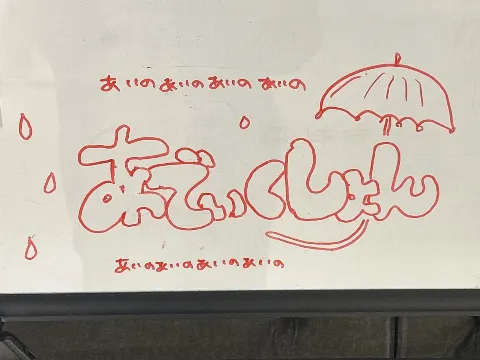 あいのあいのあいの あいの
おでぃくしょん
あいのあいのあいのあいの